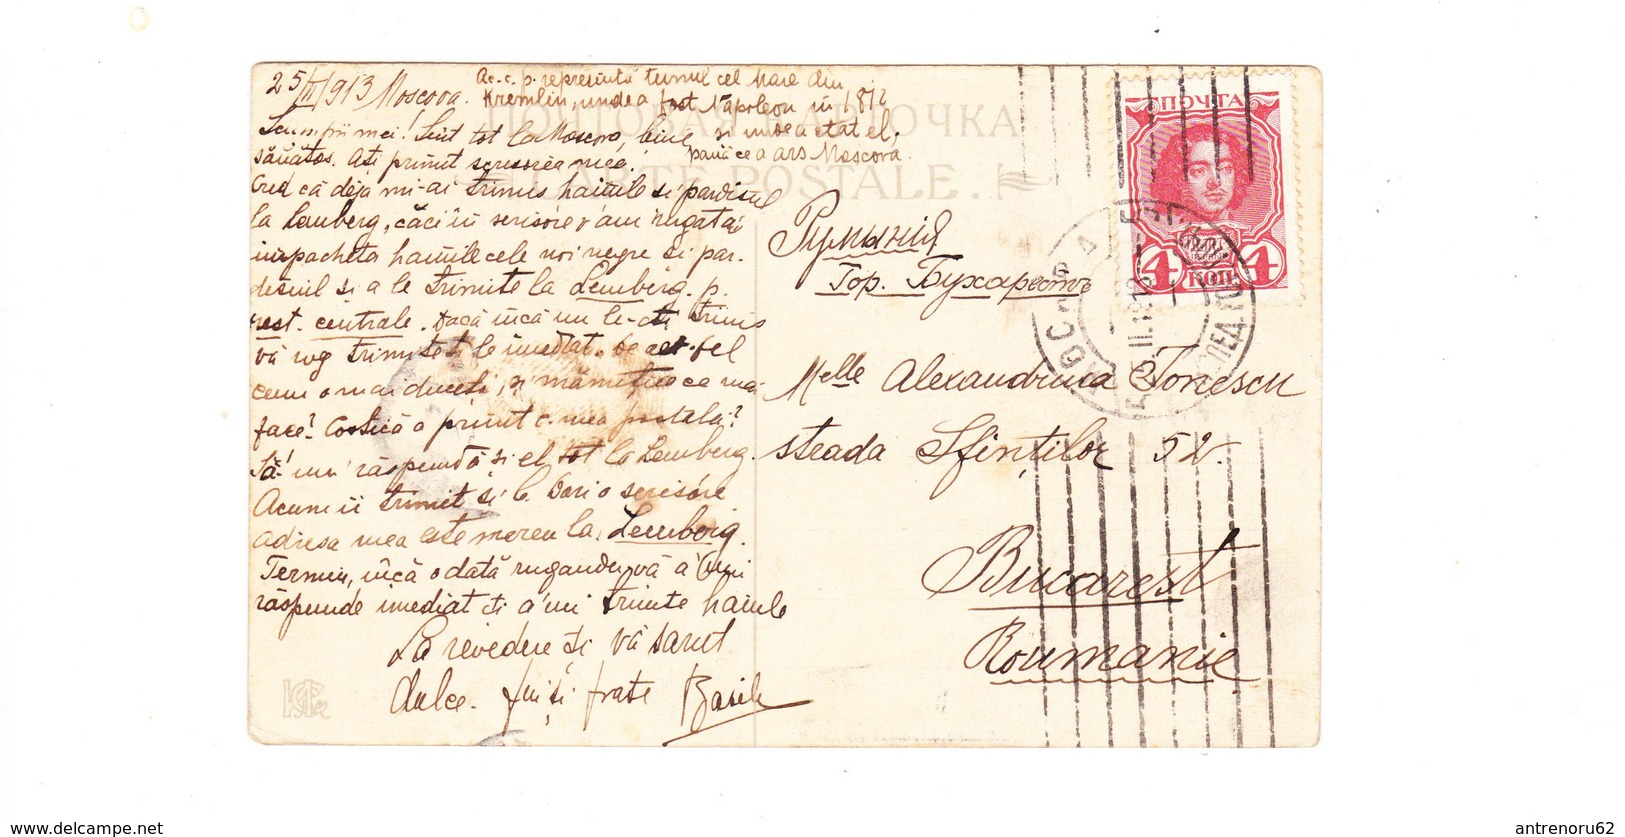 25/II/913 Moscova.
Ac. c. p. represintă turnul cel mare din
Kremlin, unde a fost Napoleon în 1812
și unde a stat el,
până ce a ars Moscova.
ПОЧТОВАЯ КАРТОЧКА
CARTE POSTALE.
Scumpii mei! Sunt tot la Moscova, bine
sănătos. Ați primit scrisorea mea?
Cred că deja mi-ai trimis hainile și pardisul
la Lemberg, căci în scrisore v'am rugat a
împacheta hainile cele noi negre și par-
desiul și a le trimite la Lemberg. p.
rest. centrale. Dacă încă nu le-ați trimis
vă rog trimiteți le imediat. De
cum o mai duceți, și mămițica ce mai
face? Costică a primit c. mea postală?
Să 'mi răspundă și el tot la Lemberg.
Acum îi trimit și o scrisore
adresa mea este mereu la Lemberg.
Termin, încă odată rugându-vă a 'mi
răspunde imediat și a 'mi trimite hainile
La revedere și vă sărut
dulce. fiu și frate Basile
ПОЧТА
4 КОП 4
МОСКВА
Румынія
Гор. Бухарестъ
Melle Alexandrina Ionescu
strada Sfinților 52.
Bucarest
Roumanie
delcampe.net
antrenoru62